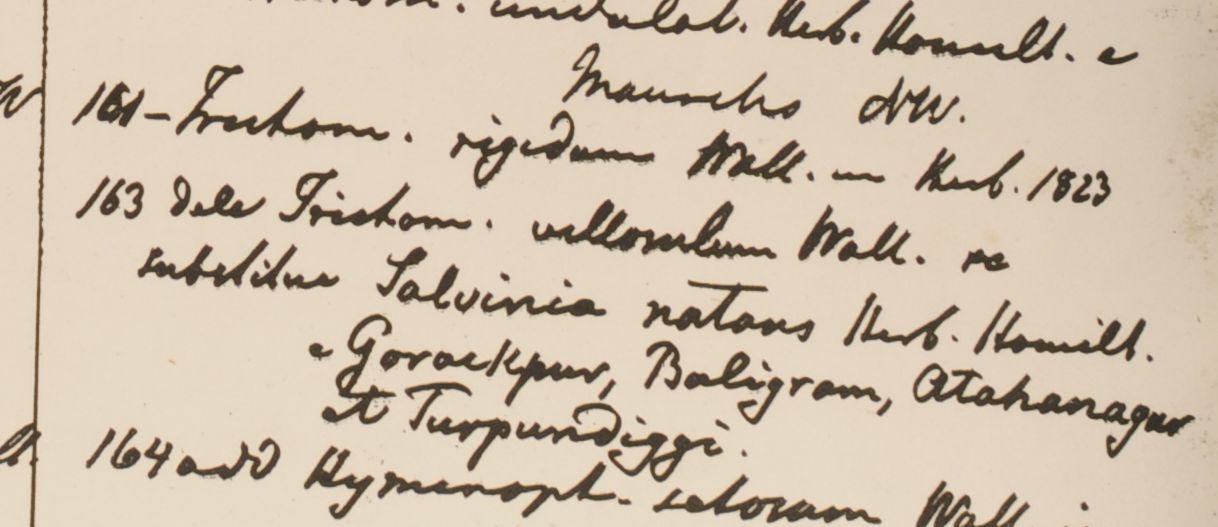 undulat. Herb. Hamilt. e
Mauritio NW.
161 - Trichom. rigidum Wall. in Herb. 1823
163 dele Trichom. villosulum Wall. et
substitue Salvinia natans Herb. Hamilt.
e Gorackpur, Baligram, Atahanagar
et Turpundiggi.
164 add Hymenoph. setosum Wall